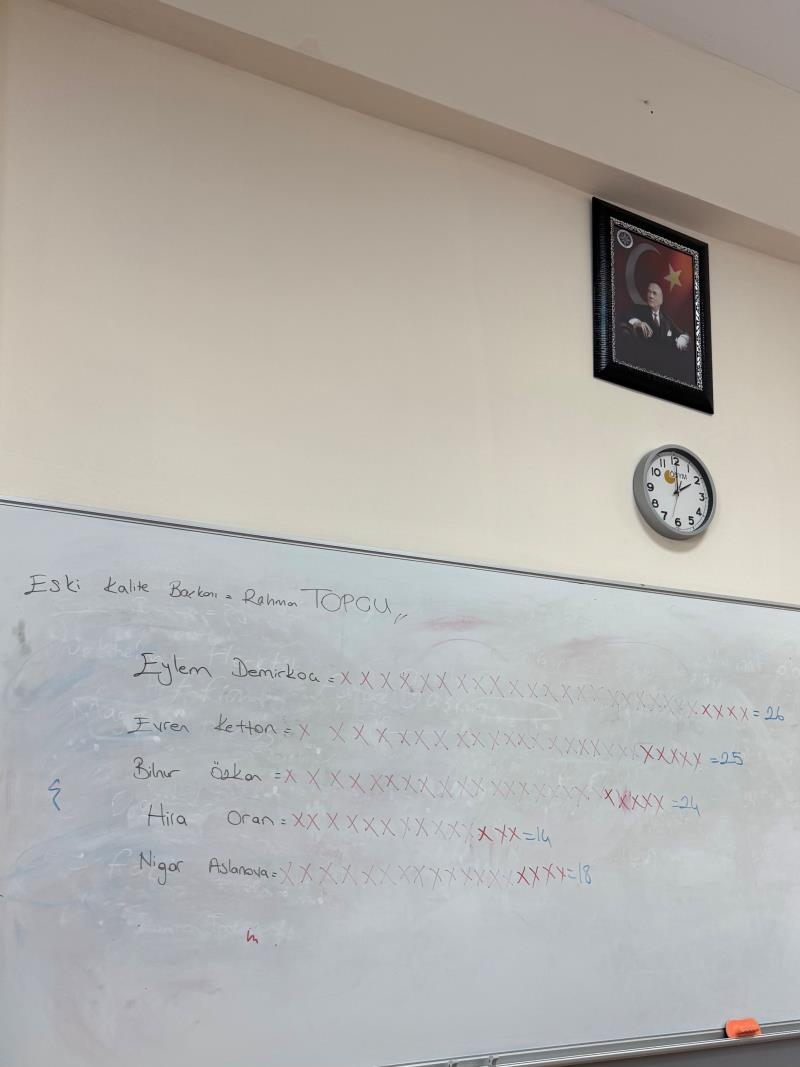 12
1
2
3
4
5
6
7
8
9
10
11
ÖSYM
Eski Kalite Başkanı = Rahman TOPCU
Eylem Demirkoca = X X X X X X X X X X X X X X X X X X X X X X X X X X = 26
Evren Ketton = X X X X X X X X X X X X X X X X X X X X X X X X X = 25
Bilnur Özkan = X X X X X X X X X X X X X X X X X X X X X X X X = 24
Hira Oran = X X X X X X X X X X X X X X = 14
Nigar Aslanova = X X X X X X X X X X X X X X X X X X = 18